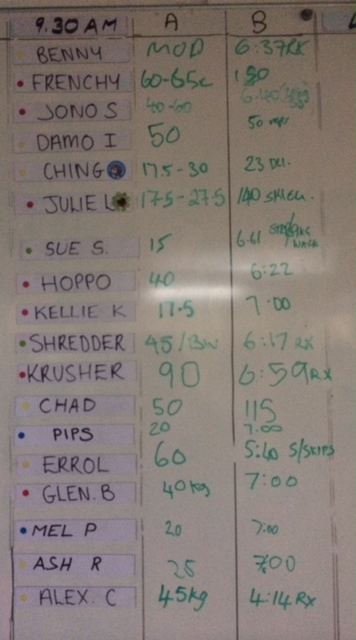 9.30 AM A B
BENNY MOD 6:37RX
FRENCHY 60-65c 130
JONO S 40-60 6.40
DAMO I 50 50 reps
CHING 17.5-30 23 DU.
JULIE L 17.5-27.5 140 SKIES.
SUE S. 15 6.41
HOPPO 40 6:22
KELLIE K 17.5 7:00
SHREDDER 45/BW 6:17 RX
KRUSHER 90 6:59RX
CHAD 50 115
PIPS 20 7:00
ERROL 60 5:40 S/SKIPS
GLEN.B 40kg 7:00
MEL P 20 7:00
ASH R 25 7:00
ALEX. C 45kg 4:14 RX